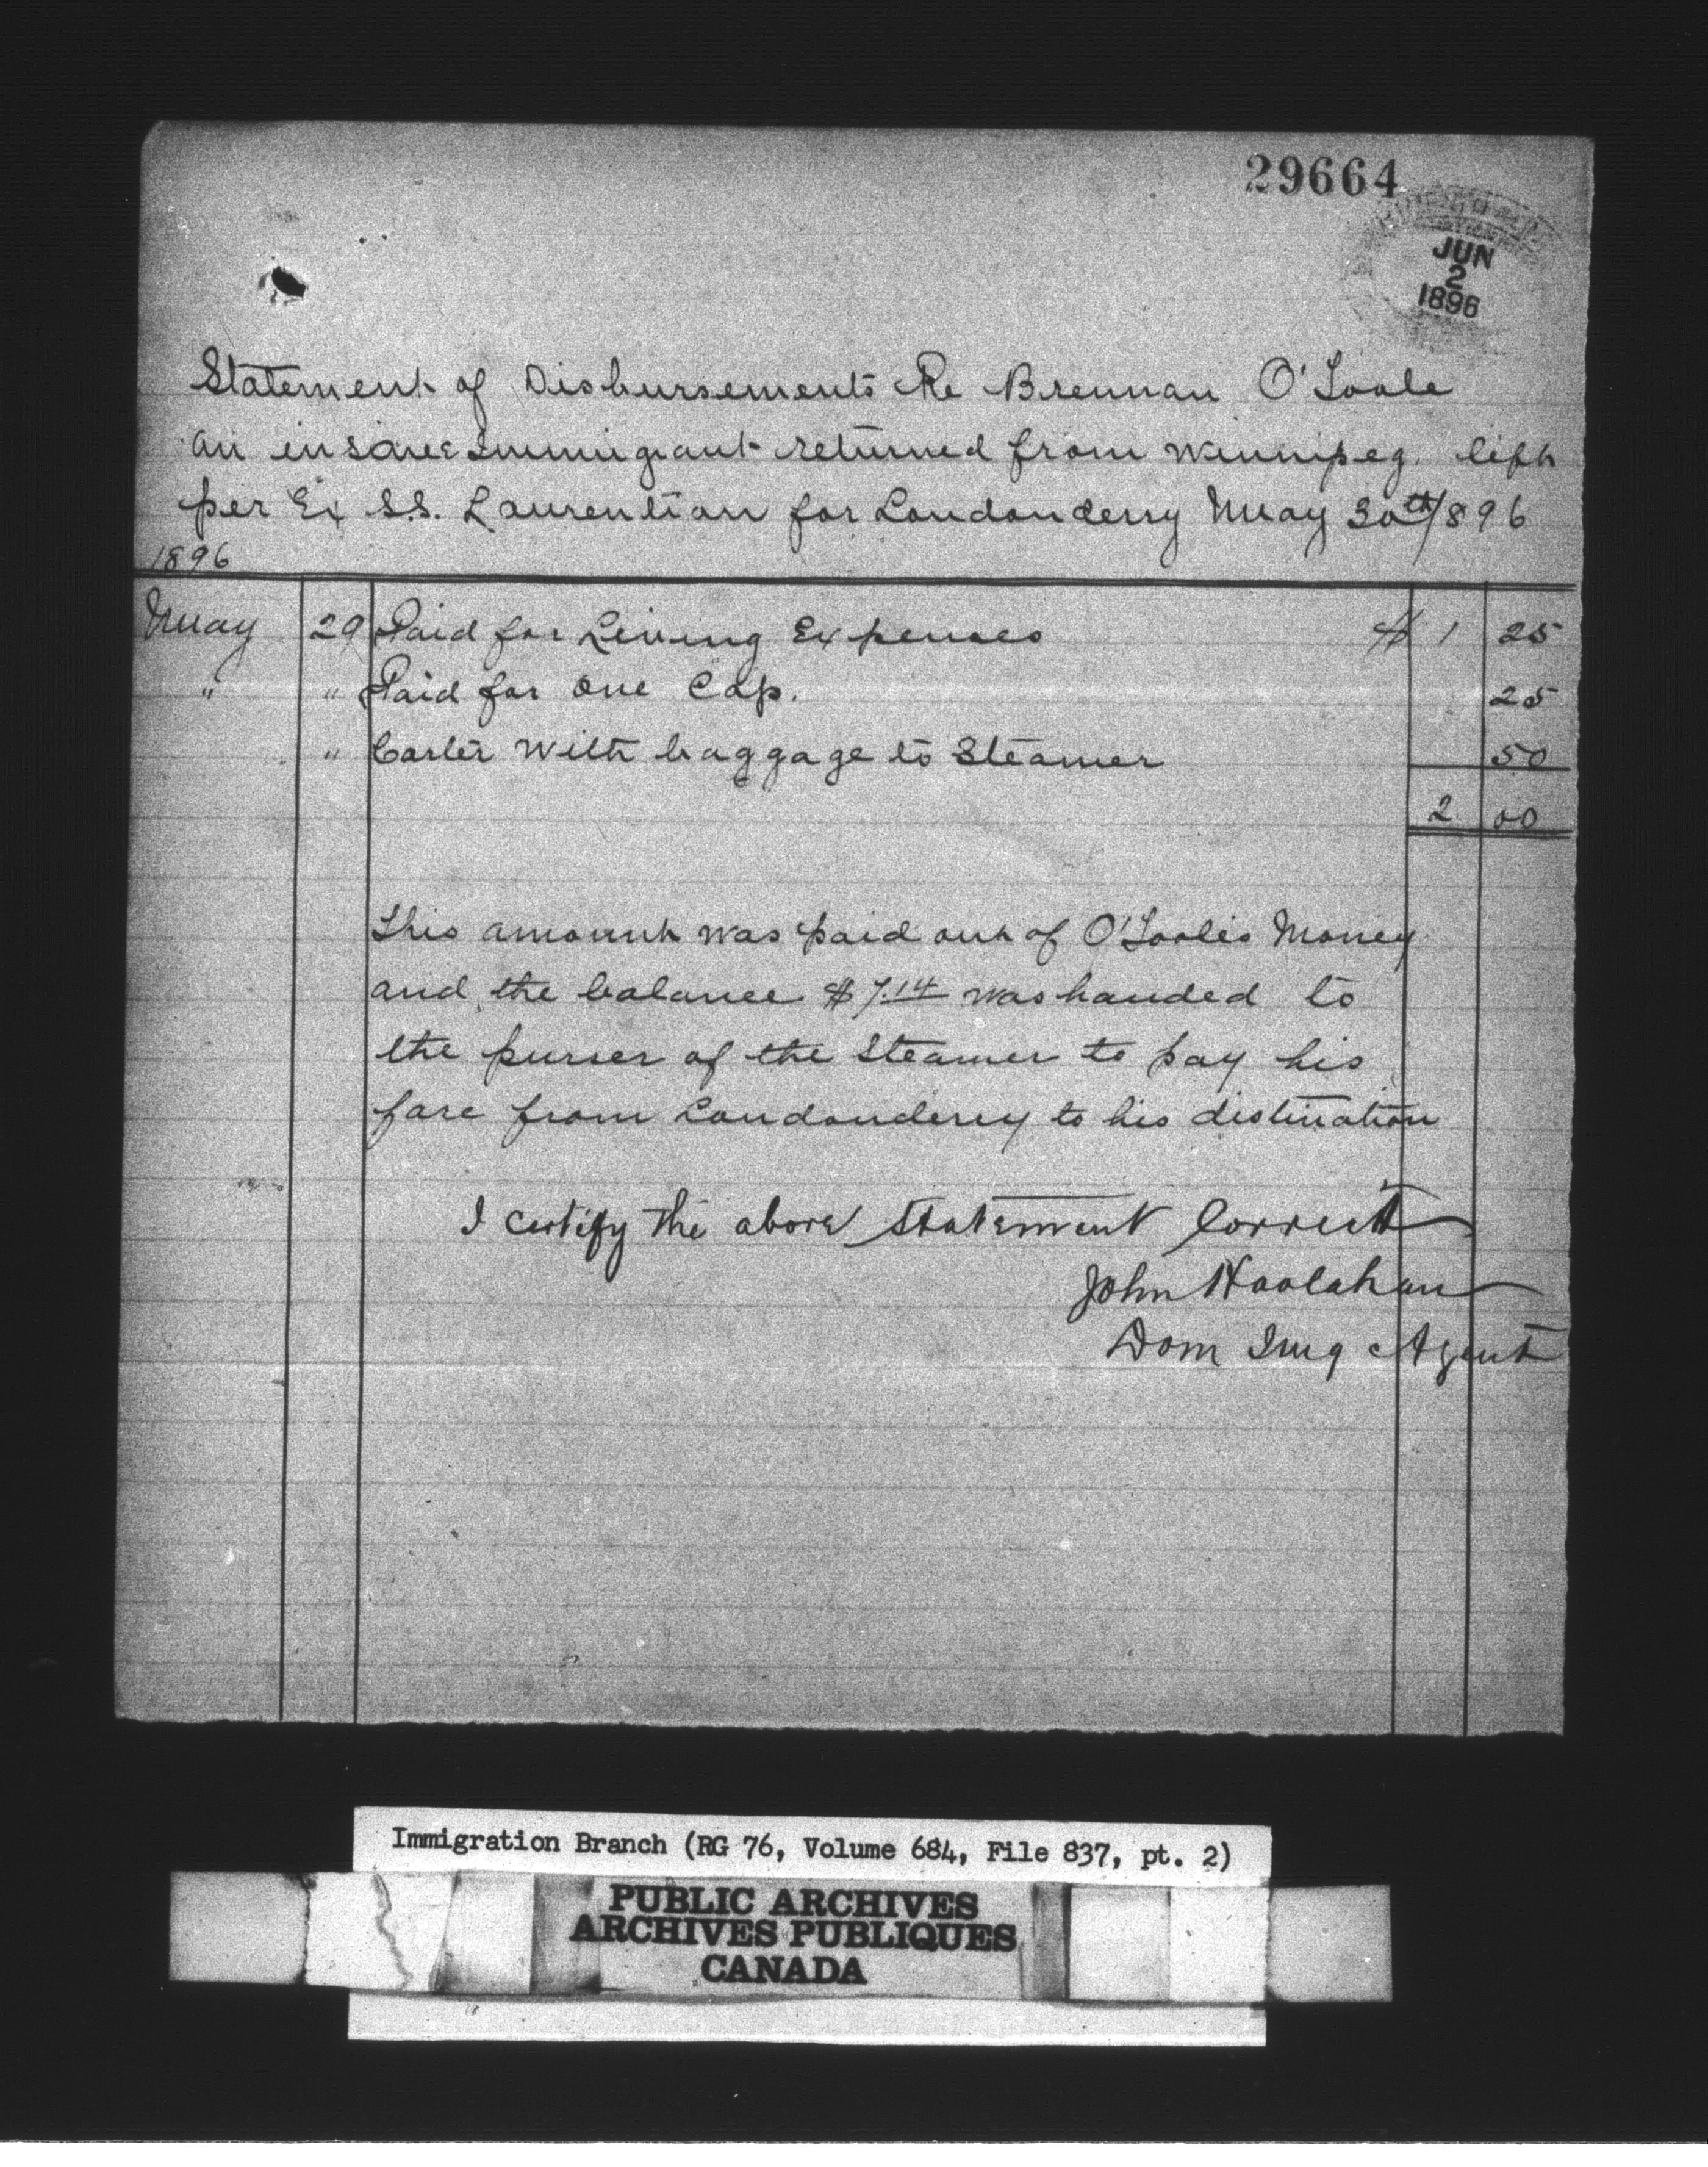 29664
JUN
2
1896
Statement of Disbursements Re Brennan O'Toole
an insane Immigrant returned from Winnipeg. left
per Ex S.S. Laurentian for Londonderry May 30th/896
1896
May 29 Paid for Living Expenses $ 1 25
" " Paid for One Cap. 25
" Carter with baggage to Steamer 50
2 00
This amount was paid out of O'Toole's Money
and the balance $7.14 was handed to
the purser of the Steamer to pay his
fare from Londonderry to his distination
I certify the above Statement Correct
John Hoolahan
Dom Img Agent
Immigration Branch (RG 76, Volume 684, File 837, pt. 2)
PUBLIC ARCHIVES
ARCHIVES PUBLIQUES
CANADA